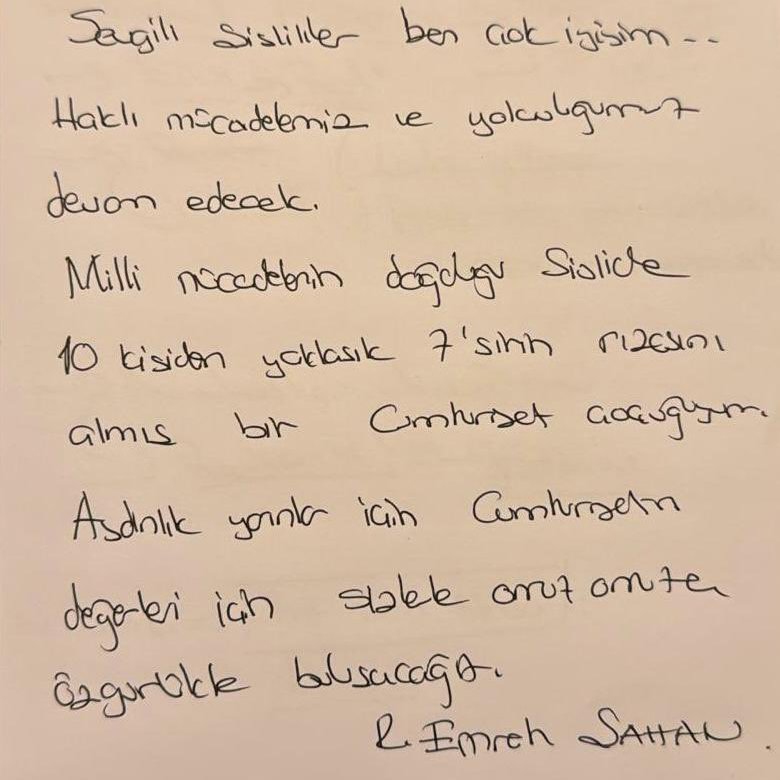 Saygılı Şişlililer ben çok iyiyim...
Haklı mücadelemiz ve yolculuğumuz
devam edecek.
Milli mücadelenin doğduğu Şişli'de
10 kişiden yaklaşık 7'sinin rızasını
almış bir Cumhuriyet çocuğuyum.
Aydınlık yarınlar için Cumhuriyetin
değerleri için sizlerle omuz omuza
özgürlükle buluşacağız.
R. Emrah ŞAHAN